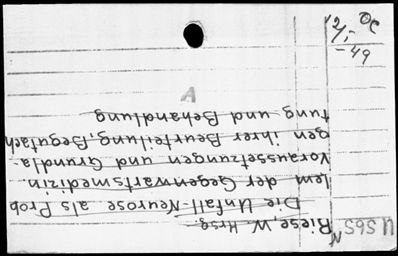 U 5655
N
Riese, W. Hrsg.
Die Unfall-Neurose als Prob
lem der Gegenwartsmedizin.
Voraussetzungen und Grundla-
gen ihrer Beurteilung, Begutach
tung und Behandlung
A
12/,-
-49